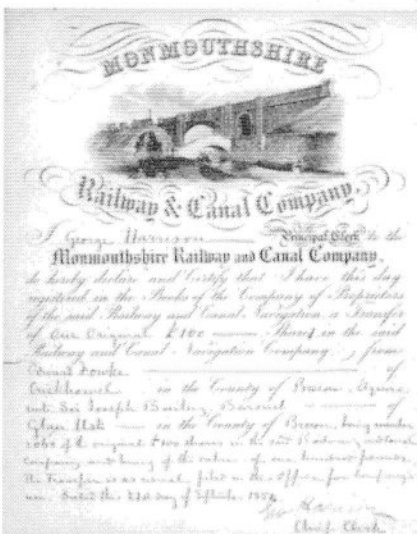 MONMOUTHSHIRE
Railway & Canal Company.
I George Harrison Principal Clerk to the
Monmouthshire Railway and Canal Company,
do hereby declare and Certify that I have this day
registered in the Books of the Company of Proprietors
of the said Railway and Canal Navigation, a Transfer
of One Original £100 Shares in the said
Railway and Canal Navigation Company, from
of
Crickhowell in the County of Brecon, Esquire
unto Sir Joseph Bailey, Baronet of
Glan Usk in the County of Brecon, being number
of the original £100 shares in the said Railway and Canal
Company and being of the value of one hundred pounds.
The Transfer is as usual filed in the Office for Company's
use. Dated this day of September 185
Chief Clerk